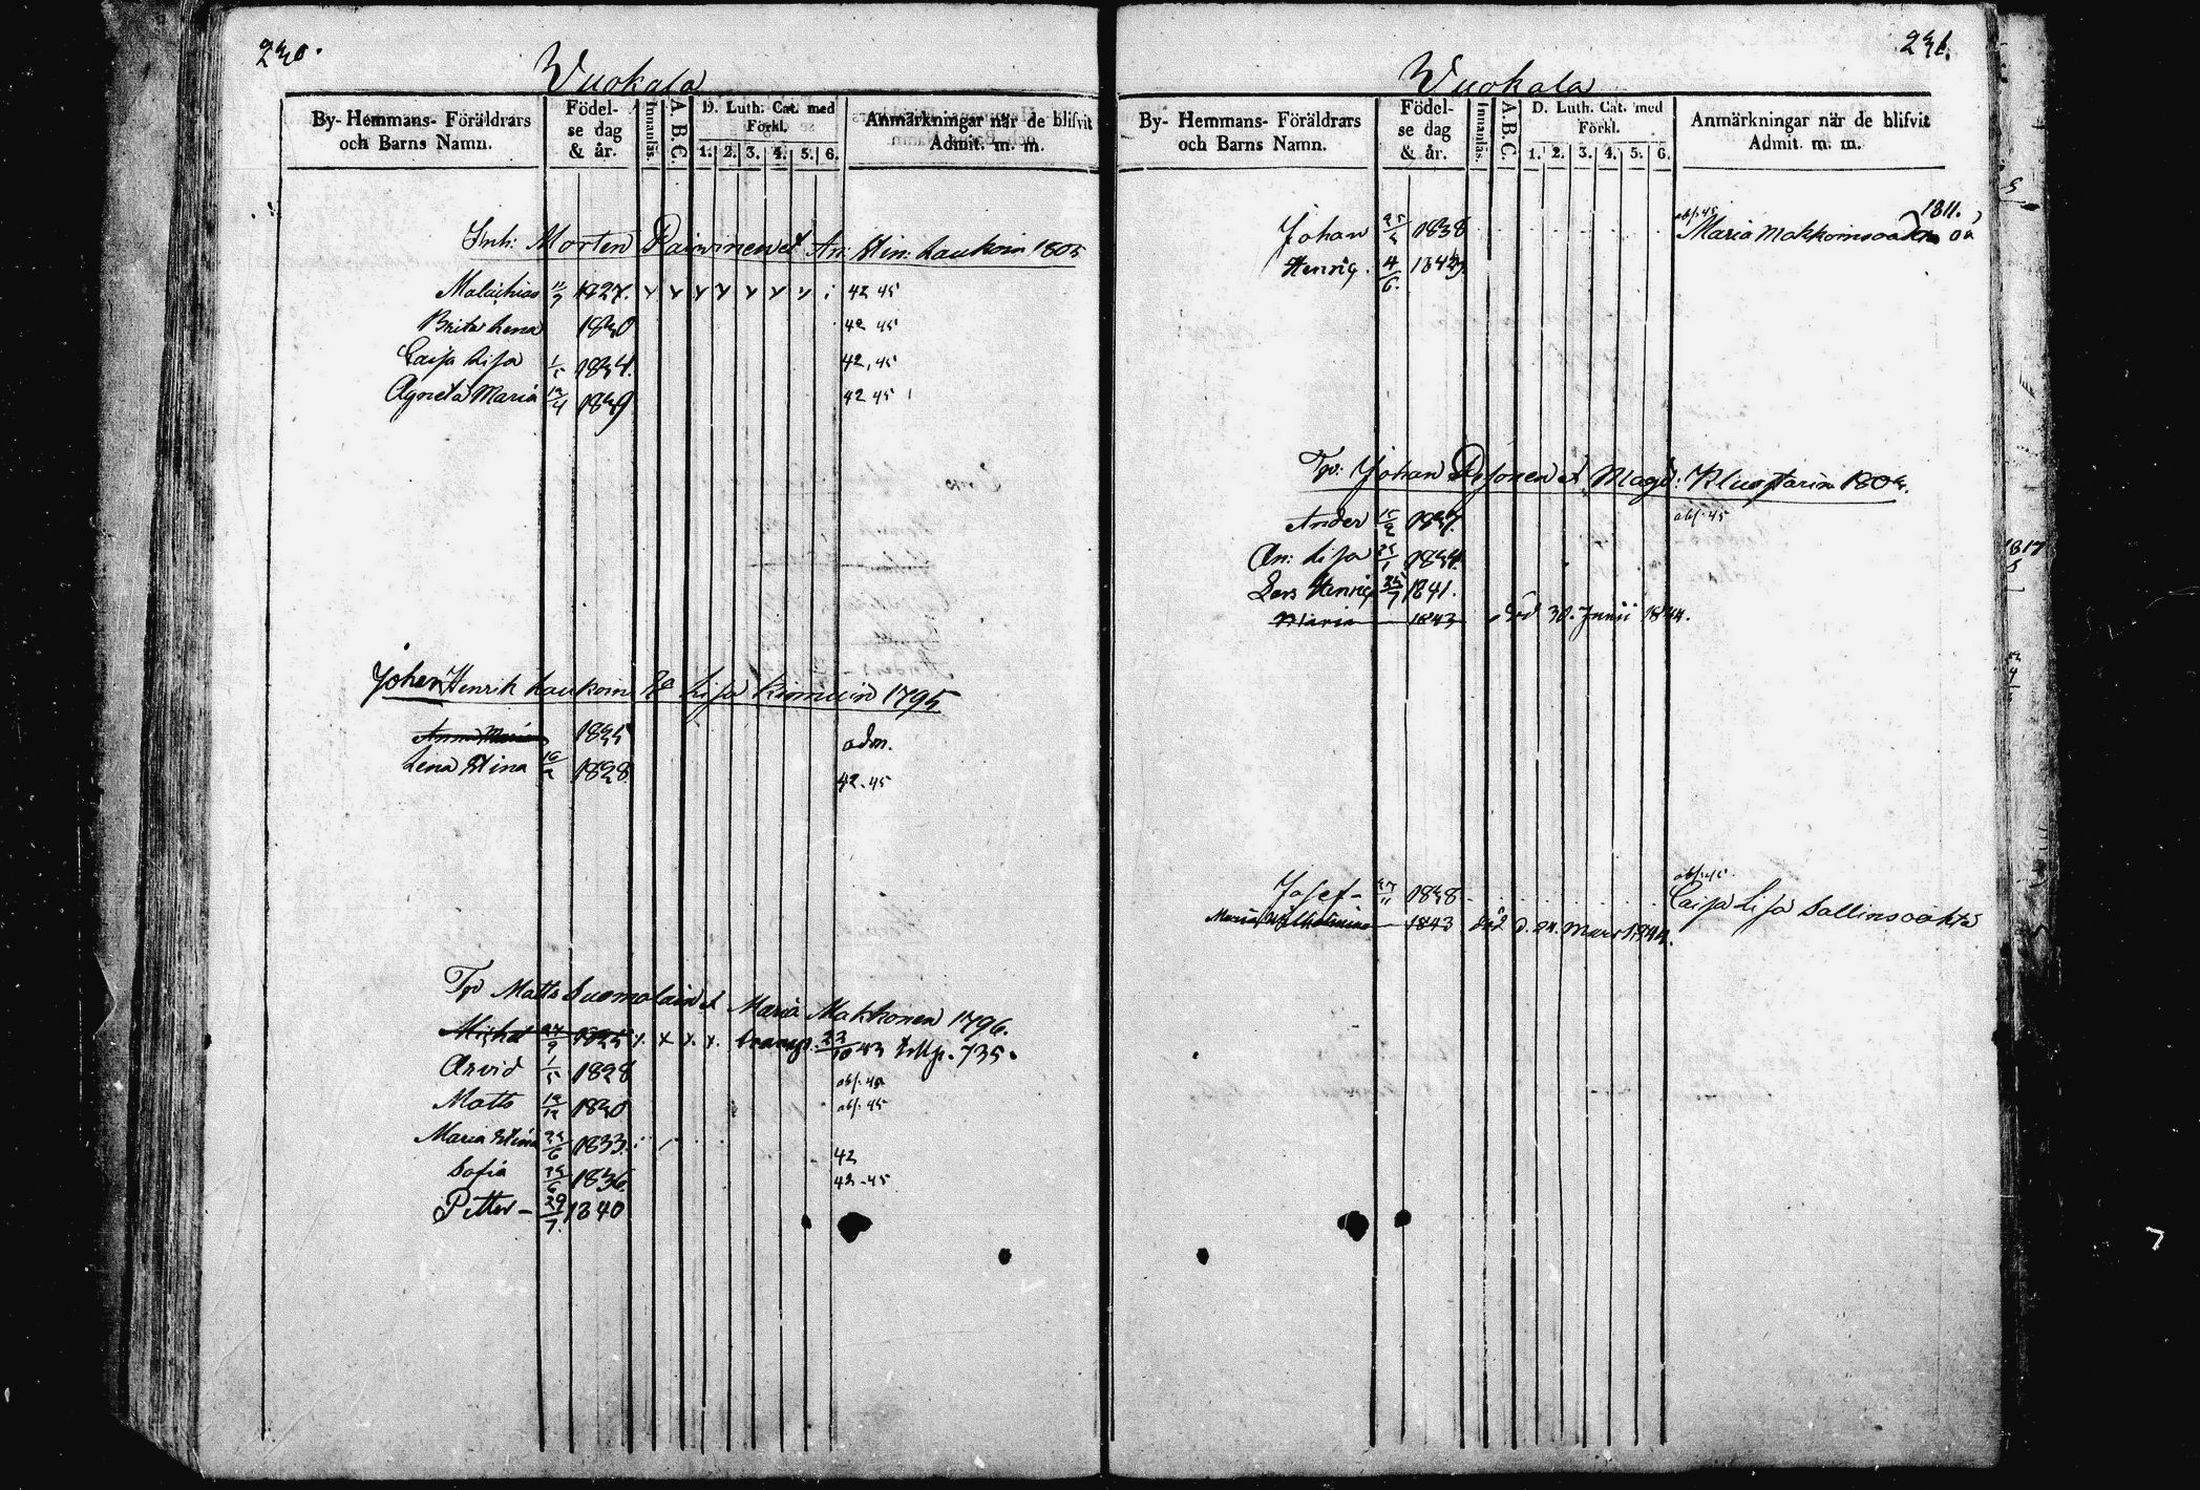 230.
Wuokala
By- Hemmans- Föräldrars och Barns Namn.
Födel-se dag & år.
Innanläs.
A. B. C.
D. Luth. Cat. med Förkl.
1. 2. 3. 4. 5. 6.
Anmärkningar när de blifvit Admit. m. m.
Inh: Morten Paiwinen et An: Stin: Laukain 1805
Malachias 11/7 1827. 42 45
Brita Lena 1830 42 45
Caisa Lisa 1/5 1834. 42, 45
Agneta Maria 12/4 1839 42 45
Johan Henrik Laukain Lisa 1795
Anna Maria 1825 adm.
Lena Stina 1828 42. 45
Tp Matts Suomolain et Maria Makkonen 1796.
Michel 24/9 1825 x x x x transp. 22/10 43 735.
Arvid 1/5 1828 abs. 45
Matts 12/12 1830 abs. 45
Maria Stina 25/6 1833. 42
Sofia 25/6 1836 42-45
Petter - 29/7. 1840
231.
Wuokala
By- Hemmans- Föräldrars och Barns Namn.
Födel-se dag & år.
Innanläs.
A. B. C.
D. Luth. Cat. med Förkl.
1. 2. 3. 4. 5. 6.
Anmärkningar när de blifvit Admit. m. m.
1811.
Johan 25/5 1838 abs. 45 Maria
Henrig. 4/6. 1842
Tp: Johan et Magd: 180
Ander 15/2 abs. 45
An: Lisa 25/1 1834.
Lars Henrig 25/7 1841.
Maria 1843 död 30. Junii 1844.
Josef - 27/11 1838 abs. 45. Caisa Lisa
Maria Wilhelmina 1843 död d. 24. Mars 1844.
1817